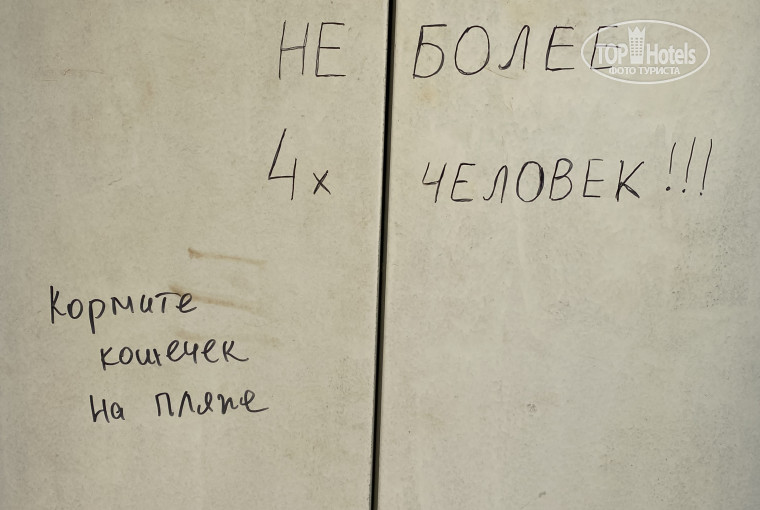 НЕ БОЛЕЕ
TOP Hotels
ФОТО ТУРИСТА
4х ЧЕЛОВЕК!!!
Кормите
кошечек
на пляже